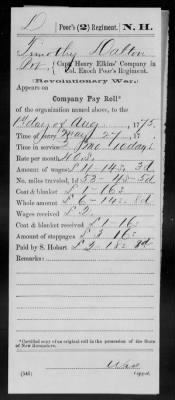 D | Poor's (2) Regiment. | N. H.
Timothy Dalton
Pvt., Capt. Henry Elkins' Company in
Col. Enoch Poor's Regiment.
(Revolutionary War.)
Appears on
Company Pay Roll*
of the organization named above, to the
1st day of Aug, 1775.
Time of entry May 27, 17
Time in service 2 mo 10 days
Rate per month 40 S.
Amount of wages £4-14s-3d
No. miles traveled, 1d 53-4s-5d
Coat & blanket £1-16s
Whole amount £6-14s-8d
Wages received £2
Coat & blanket received £1-16s
Amount of stoppages £3 16s
Paid by S. Hobart £2-18s-8d
Remarks:
*Certified copy of an original roll in the possession of the State of New Hampshire.
(546)
Copyist.